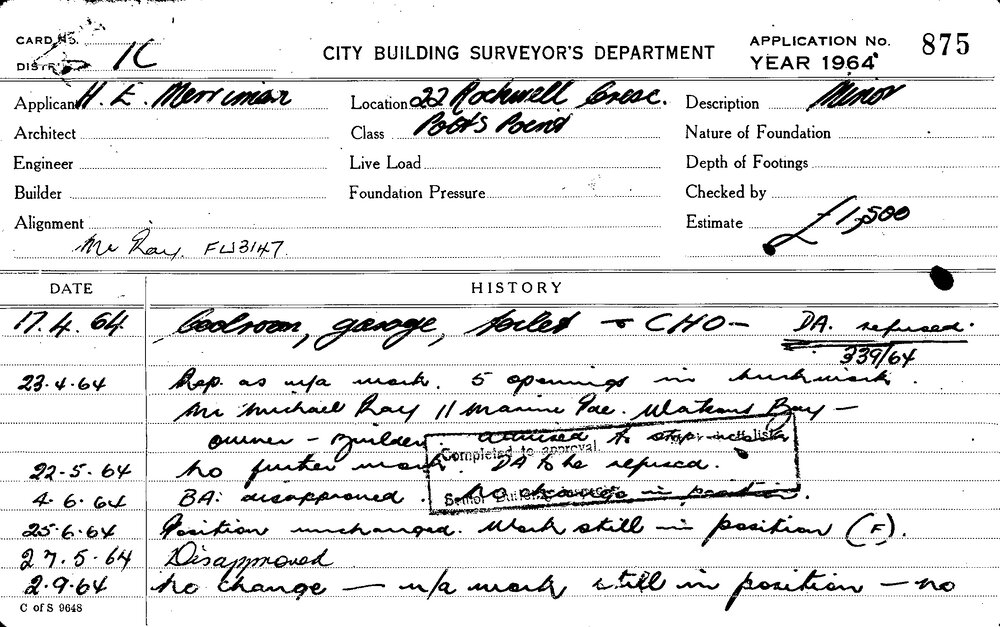 CARD No.
DISTRICT 1C
CITY BUILDING SURVEYOR'S DEPARTMENT
APPLICATION No. 875
YEAR 1964
Applicant H. E. Merriman Location 22 Rockwell Cresc. Description Minor
Architect Class Potts Point Nature of Foundation
Engineer Live Load Depth of Footings
Builder Foundation Pressure Checked by
Alignment Estimate £1,500
Mr Ray. FW3147.
DATE HISTORY
17.4.64 Coolroom, garage, toilet - CHO - DA. refused.
339/64
23.4.64 Rep. as u/a work. 5 openings in brickwork.
Mr Michael Ray 11 Marine Pde. Watsons Bay -
owner - Builder. advised to stop
Completed to approval.
22-5-64 No further work. DA to be refused.
4.6.64 BA: disapproved. No change in position.
Senior Building
25.6.64 Position unchanged. Work still in position (F).
27.5.64 Disapproved
2.9.64 No change - u/a work still in position - no
C of S 9648